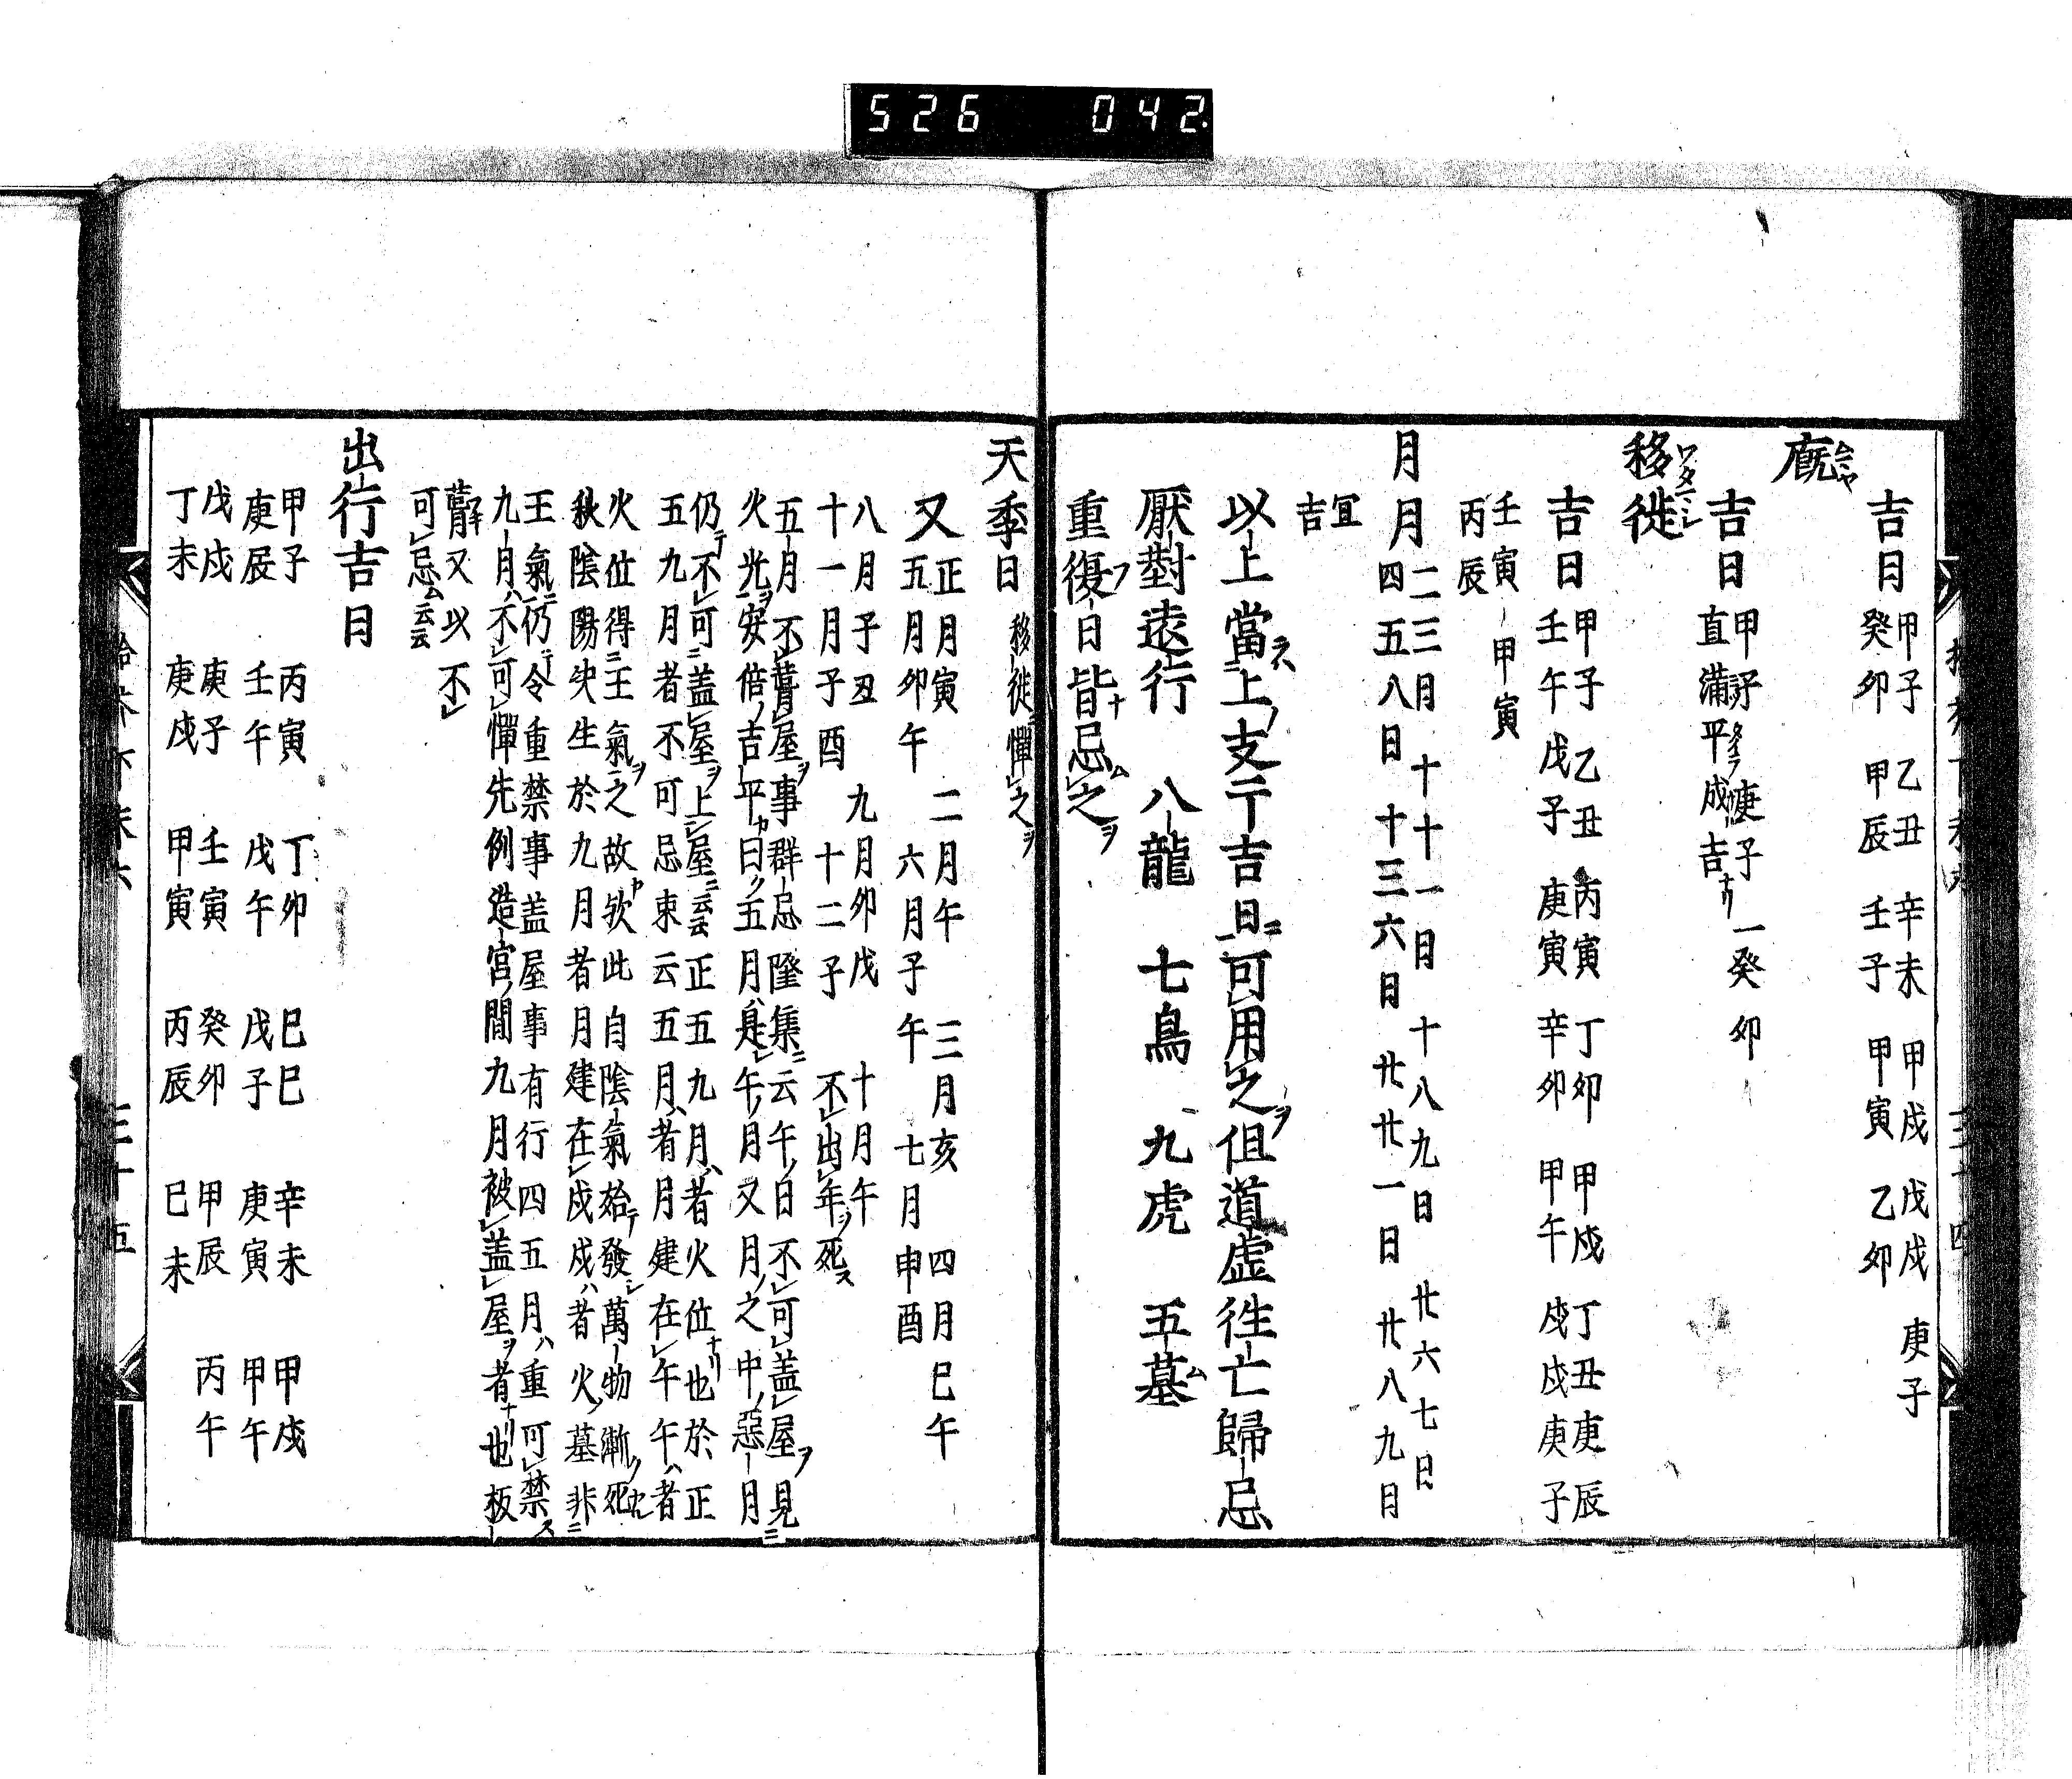 526 042
吉日 甲子 乙丑 辛未 甲戌 戊戌 庚子
癸卯 甲辰 壬子 甲寅 乙卯
廐
吉日 甲子 庚子 一癸卯
直滿平成吉
移徙
吉日 甲子 乙丑 丙寅 丁卯 甲戌 丁丑 庚辰
壬午 戊子 庚寅 辛卯 甲午 戊戌 庚子
壬寅 甲寅
丙辰
月月 二三月 十十一日 十八九日 廿六七日
四五八日 十三六日 廿廿一日 廿八九日
宜
吉
以上當上支干吉日可用之但道虛徃亡歸忌
厭對遠行 八龍 七鳥 九虎 五墓
重復日皆忌之
天季日 移徙憚之
又 正月寅 二月午 三月亥 四月巳午
五月卯午 六月子午 七月申酉
八月子丑 九月卯戌 十月午
十一月子酉 十二子 不出年死
五月不葺屋事群忌隆集云午日不可盖屋見
火光安倍吉平曰五月是午月又月之中惡月
仍不可盖屋上屋云云正五九月者火位也於正
五九月者不可忌東云五月者月建在午午者
火位得王氣之故欤此自陰氣始發萬物漸死
秋陰陽失生於九月者月建在戌戌者火墓非
王氣仍令重禁事盖屋事有行四五月重可禁
九月不可憚先例造宮間九月被盖屋者也板
葺又以不
可忌云云
出行吉日
甲子 丙寅 丁卯 巳巳 辛未 甲戌
庚辰 壬午 戊午 戊子 庚寅 甲午
戊戌 庚子 壬寅 癸卯 甲辰 丙午
丁未 庚戌 甲寅 丙辰 巳未